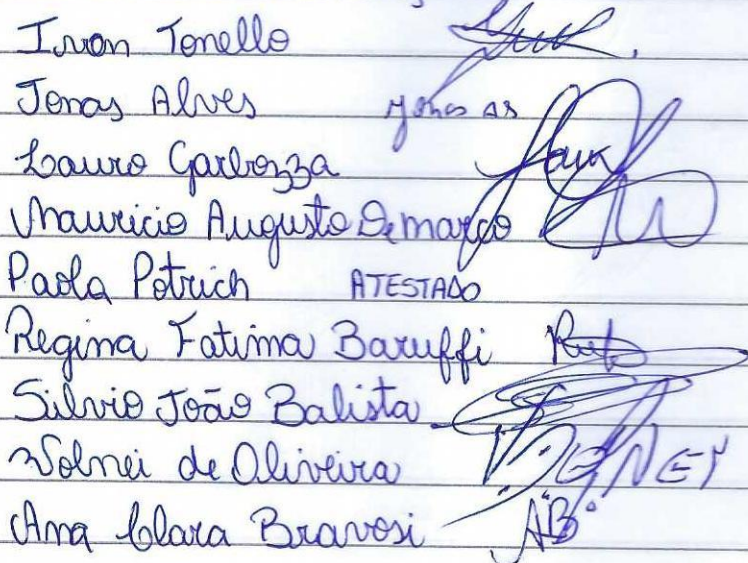 Ivan Tonello
Jonas Alves Jonas AS
Lauro Garbozza
Mauricio Augusto Demarco
Paola Potrich ATESTADO
Regina Fatima Baruffi
Silvio João Balista
Volnei de Oliveira
Ana Clara Bravosi AB